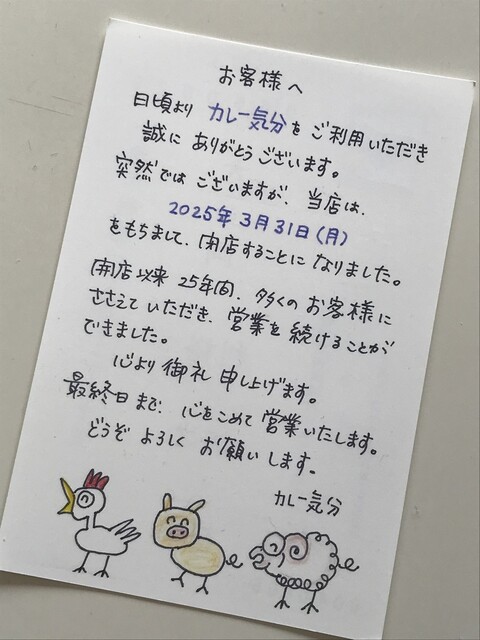 お客様へ
日頃より カレー気分を ご利用いただき
誠に ありがとう ございます。
突然では ございますが、当店は、
2025年3月31日(月)
をもちまして、閉店することに なりました。
開店以来 25年間、多くの お客様に
ささえて いただき、営業を 続けることが
できました。
心より 御礼 申し上げます。
最終日まで、心をこめて 営業いたします。
どうぞ よろしく お願い します。
カレー気分